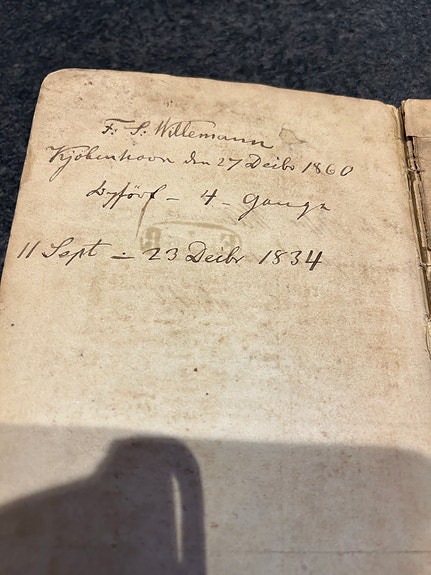 F. S. Willemann
Kjöbenhavn den 27 Decbr 1860
4 - Gange
11 Sept - 23 Decbr 1834